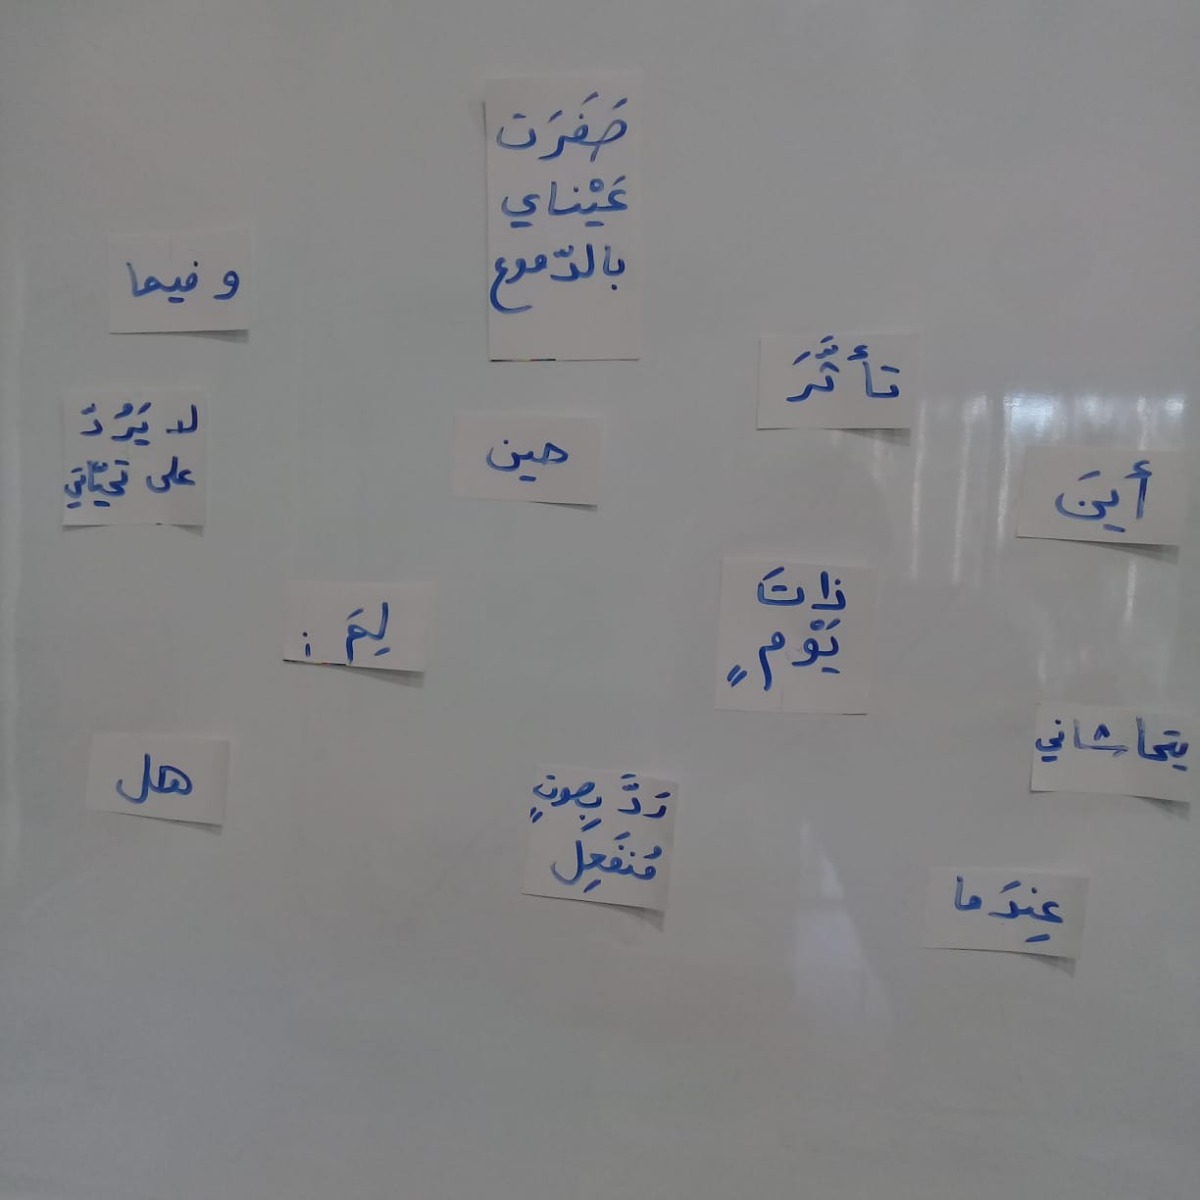 صَفَرَت
عَيْناي
بالدّموع
و فيما
تأثَّرَ
لا يَرُدّ
على تحيّاتي
حين
أينَ
ذاتَ
يَوْمٍ
لِمَ :
يتحاشاني
هل
رَدَّ بِصوتٍ
مُنفَعِل
عِندَما